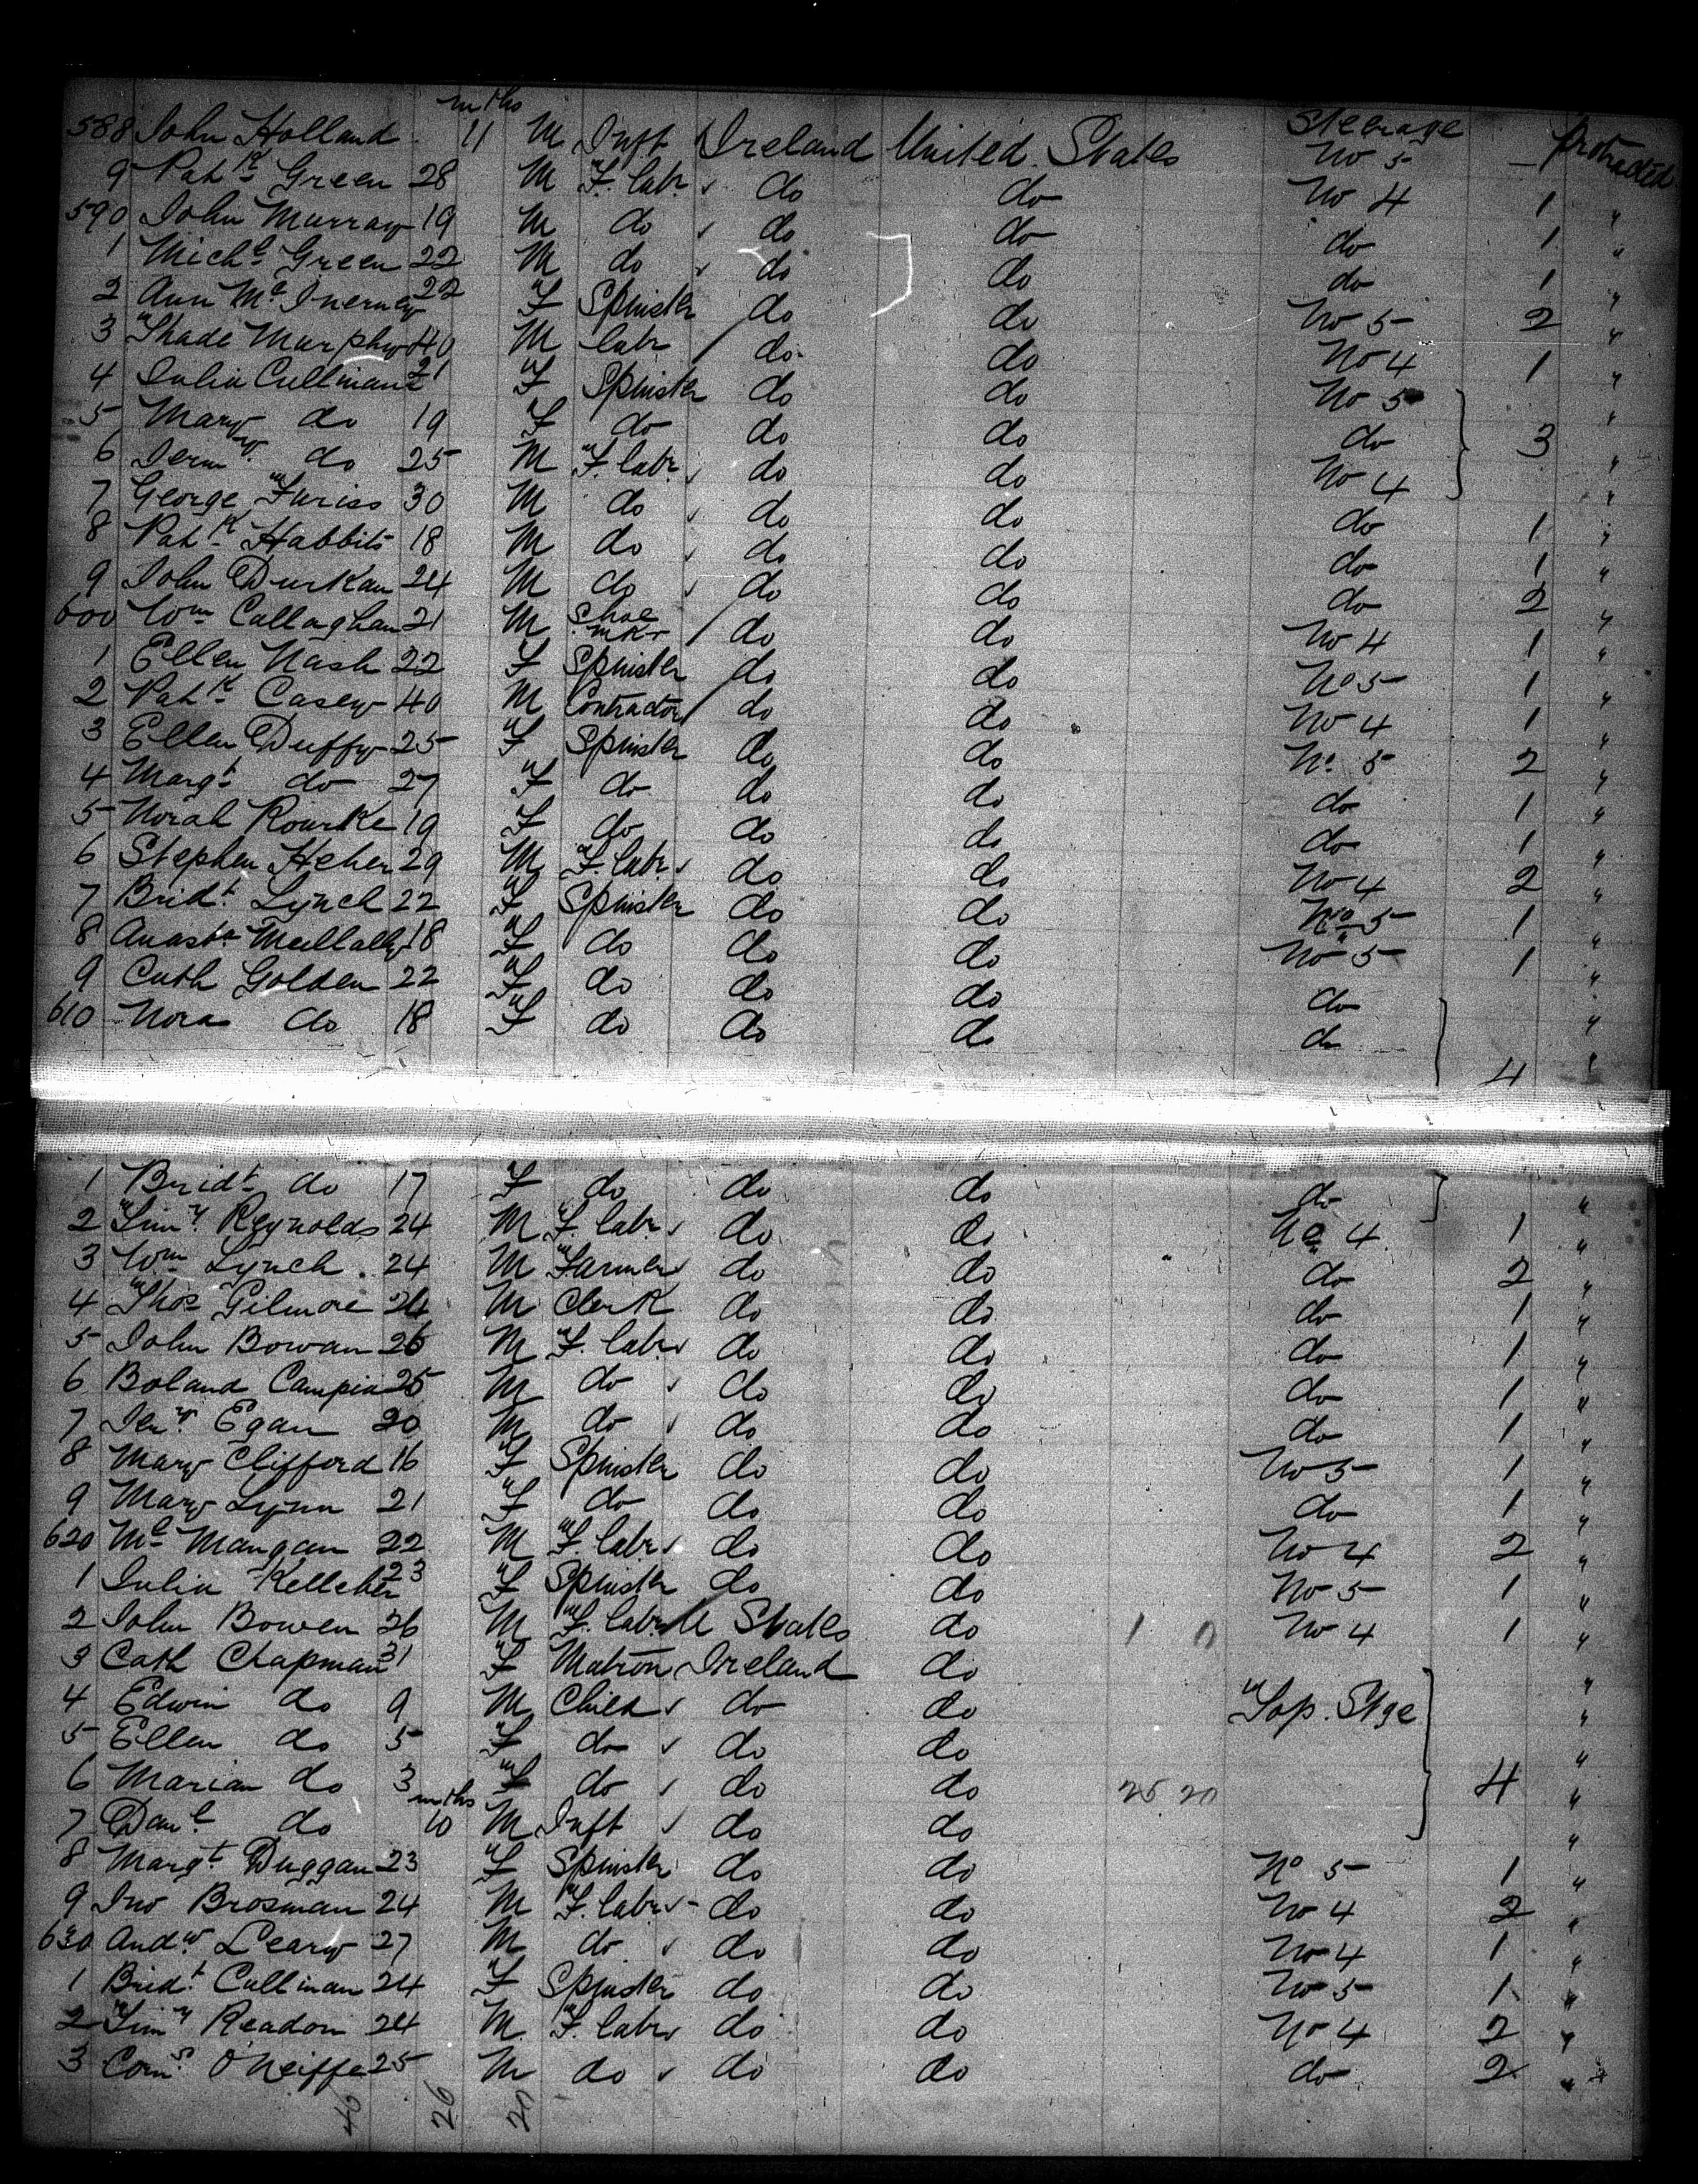 mths Steerage
588 John Holland 11 M Inft Ireland United States No 5 — Protracted
9 Patk Green 28 M F. labr do do No 4 1 "
590 John Murray 19 M do do do do 1 "
1 Michl Green 22 M do do do do 1 "
2 Ann McInerney 22 F Spinster do do No 5 2 "
3 Thade Murphy 40 M labr do do No 4 1 "
4 Julia Cullinane 21 F Spinster do do No 5 "
5 Mary do 19 F do do do do 3 "
6 Jermy do 25 M F. labr do do No 4 "
7 George Furiss 30 M do do do do 1 "
8 Patk Habbits 18 M do do do do 1 "
9 John Durkan 24 M do do do do 2 "
600 Wm Callaghan 21 M Shoe mkr do do No 4 1 "
1 Ellen Nash 22 F Spinster do do No 5 1 "
2 Patk Casey 40 M Contractor do do No 4 1 "
3 Ellen Duffy 25 F Spinster do do No 5 2 "
4 Margt do 27 F do do do do 1 "
5 Norah Rourke 19 F do do do do 1 "
6 Stephen Heher 29 M F. labr do do No 4 2 "
7 Bridt Lynch 22 F Spinster do do No 5 1 "
8 Anasta Mullally 18 F do do do No 5 1 "
9 Cath Golden 22 F do do do do "
610 Nora do 18 F do do do do 4 "
1 Bridt do 17 F do do do do "
2 Timy Reynolds 24 M F. labr do do No 4 1 "
3 Wm Lynch 24 M Farmer do do do 2 "
4 Thos Gilmore 24 M Clerk do do do 1 "
5 John Bowan 26 M F. labr do do do 1 "
6 Boland Campion 25 M do do do do 1 "
7 Jery Egan 20 M do do do do 1 "
8 Mary Clifford 16 F Spinster do do No 5 1 "
9 Mary Lynn 21 F do do do do 1 "
620 Ml Mangan 22 M F. labr do do No 4 2 "
1 Julia Kelleher 23 F Spinster do do No 5 1 "
2 John Bowen 26 M F. labr U States do 1 0 No 4 1 "
3 Cath Chapman 31 F Matron Ireland do "
4 Edwin do 9 M Child do do Top. Stge "
5 Ellen do 5 F do do do "
6 Marian do 3 F do do do 26 20 4 "
7 Danl do mths 10 M Inft do do "
8 Margt Duggan 23 F Spinster do do No 5 1 "
9 Jno Brosman 24 M F. labr do do No 4 2 "
630 Andw Leary 27 M do do do No 4 1 "
1 Bridt Cullinan 24 F Spinster do do No 5 1 "
2 Timy Readon 24 M F. labr do do No 4 2 "
3 Corns O'Keiffe 25 M do do do do 2 "
40 26 20